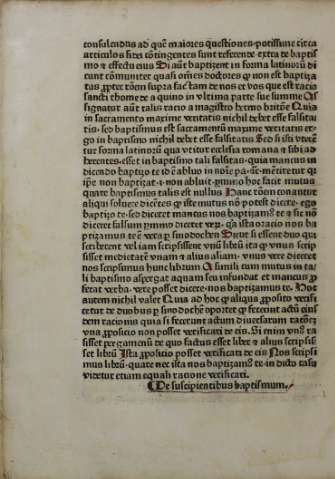 consulendus ad quē maiores questiones potissime circa
articulos fidei cōtingentes sunt referende extra de baptis
mo ⁊ effectu eius Si autē baptizent in forma latinorū di
cunt cōmuniter quasi omnes doctores ꝙ non est baptiza
tus ꝓpter rōem supra factam de nos et vos que est racio
sancti thome de aquino in vltima parte sue summe As
signatur aūt talis racio a magistro henrico britōne Quia
in sacramento maxime veritatis nichil debet esse falsitat
tis. sed baptismus est sacramentū maxime veritatis er
go in baptismo nichil debet esse falsitatis Sed si isti vterē
tur forma latinorū qua vtitur ecclesia romana ⁊ sibi ad
herentes. esset in baptismo tali falsitas. quia mancus in
dicendo baptizo te id ē abluo in noīe pa. mētiretur qr
ipse non baptizat. i. non abluit .immo hoc facit mutus
quare baptismus talis est nullus Hanc rōem conantur
aliqui soluere dicētes ꝙ iste mutus nō potest dicere. ego
baptizo te. sed diceret mancus nos baptizamꝰ te ⁊ sic nō
diceret falsum immo diceret verū. qꝛ ista oratio nos ba
ptizamus te ē vera ꝑ sinodochen Sicut si essent duo qui
scriberent vel iam scripsissent vnū librū ita ꝙ vnus scrip
sisset medietatē vnam ⁊ alius aliam. vnus vere diceret
nos scripsimus hunc librum Et simili cum mutus in ta
li baptismo aspergat aquam seu infundat et mancus ꝓ
ferat verba. vere posset dicere. nos baptizamus te. Hoc
autem nichil valet Quia ad hoc ꝙ aliqua ꝓposito verifi
cetur de duobus ꝑ sinodochē oportet ꝙ fecerint actū eius
dem racionis quia si fecerunt actum diuersarum racōnꝫ
vna ꝓposito non posset verificari de eis. Si enim vnus ra
sisset pergamenū de quo factus esset liber ⁊ alius scripsis
set librū Ista ꝓpositio posset verificari de eis Nos scripsi
mus librū. quare nec ista nos baptizamꝰ te. in dicto casu
videtur etiam equali ratione verificari.
De suscipientibus baptismum.